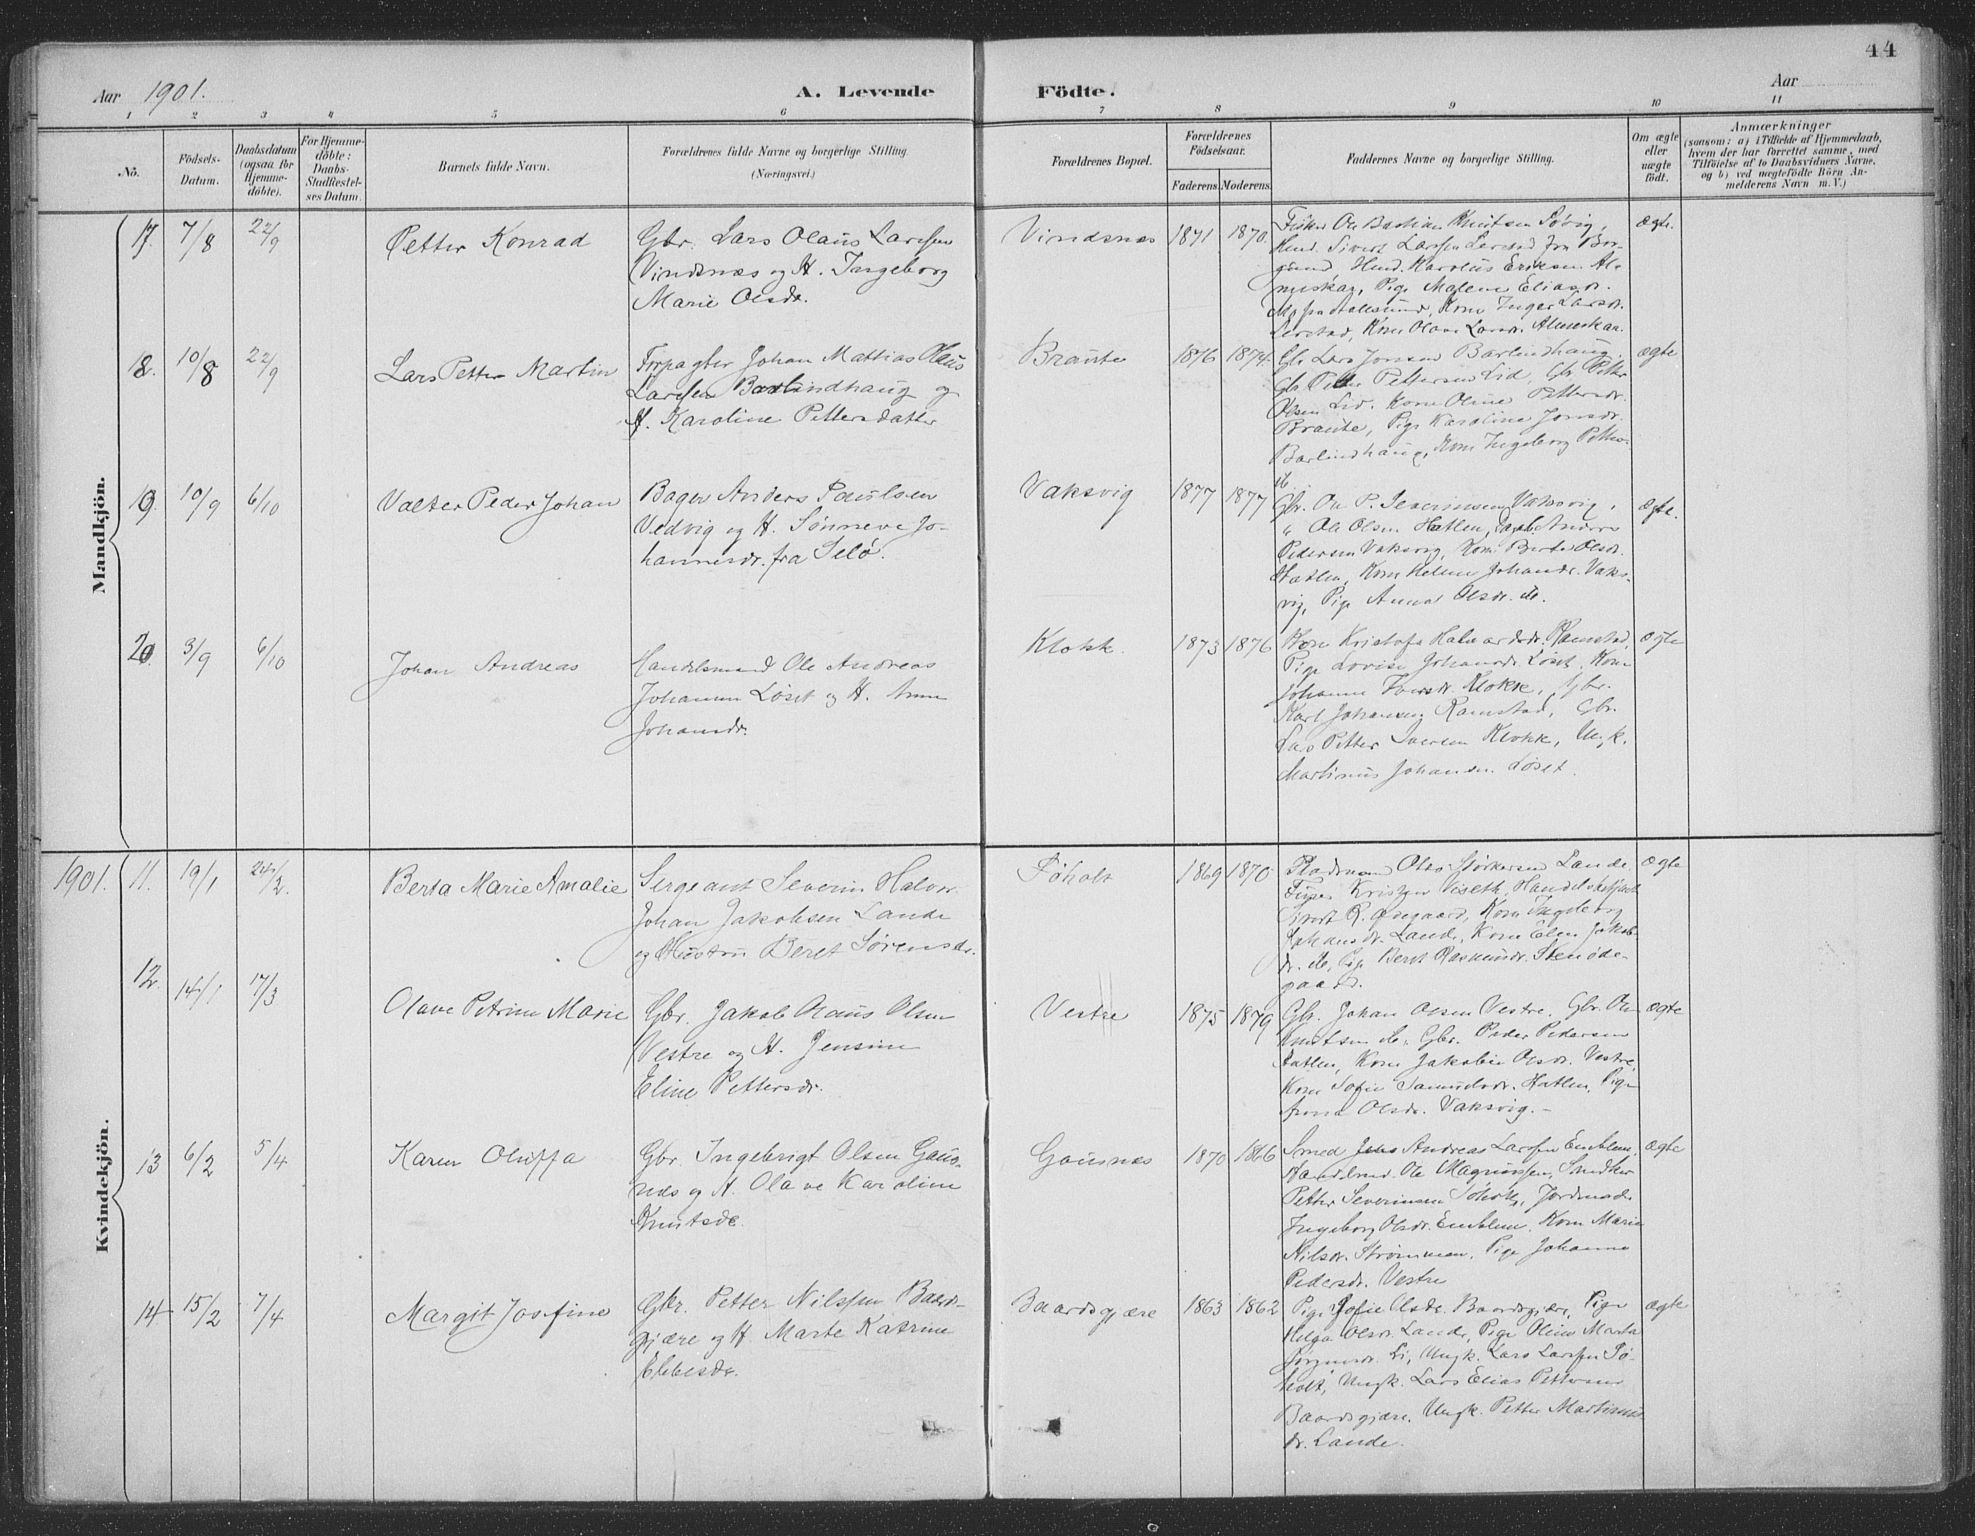 44
Aar 1901.
A. Levende Födte.
Aar
1 2 3 4 5 6 7 8 9 10 11
No.
Födsels-Datum.
Daabsdatum (ogsaa for Hjemme-döbte).
For Hjemme-döbte: Daabs-Stadfæstel-ses Datum.
Barnets fulde Navn.
Forældrenes fulde Navne og borgerlige Stilling. (Næringsvei.)
Forældrenes Bopæl.
Forældrenes Födselsaar.
Faderens. Moderens.
Faddernes Navne og borgerlige Stilling.
Om ægte eller uægte født.
Anmærkninger
(saasom: a) i Tilfælde af Hjemmedaab,
hvem der har forrettet samme, med
Tilföielse af to Daabsvidners Navne,
og b) ved uægtefödte Börn An-
melderens Navn m. V.)
Mandkjön.
17. 7/8 22/9
Petter Konrad
Gbr. Lars Olaus Larsen
Vindsnæs og H. Ingeborg
Marie Olsdr.
Vindsnæs 1871 1870
Fisker Ole Bastian Knutsen Søvig,
Ino. Sivert Larsen Lerstad fra Bor-
gund, Karolus Eriksen Al-
meskar, Pige Malene Eliasdr.
Kone Inger Larsdr.
Lerstad, Kone Olave Larsdr. Almeskaar.
ægte.
18. 10/8 22/9
Lars Petter Martin
Forpagter Johan Mattias Klaus
Larsen Barlindhaug og
H. Karoline Pettersdatter
Braute 1876 1874.
Gbr. Lars Jonsen Barlindhaug,
Gbr. Peter Pettersen Lid, Gbr. Petter
Olsen Lid. Kone Oline Pettersdr.
Braute, Pige Karoline Jonsdr.
Barlindhaug, Kone Ingeborg
ægte
19. 10/9 6/10
Valter Peder Johan
Bager Anders Paulsen
Vedvig og H. Sønneve Jo-
hannesdr. fra Selø.
Vaksvig 1877 1877
Gbr. Ole P. Severinsen Vaksvig,
" Ole Olsen Hatlen, Anders
Pedersen Vaksvig, Kone Berte Olsdr.
Hatlen, Kone Helene Johansdr. Vaks-
vig, Pige Anna Olsdr. do.
ægte.
20. 3/9 6/10
Johan Andreas
Handelsmand Ole Andreas
Johansen Løset og H. Anne
Johansdr.
Klokk. 1873 1876
Kone Kristofa Halvardsdr. Ramstad,
Pige Lovise Johansdr. Løset, Kone
Johanne Iversdr. Klokk, Gbr.
Karl Johansen Ramstad, Gbr.
Lars Petter Iversen Klokk, Ungk.
Martinus Johansen Løset.
ægte
Kvindekjön.
1901. 11. 19/1 24/2.
Berta Marie Amalie
Sergeant Severin Halvor
Johan Jakobsen Lande
og Hustru Beret Sørensdr.
Søholt 1869 1870
Pladsmand Olaus Sjurdsen Lande
Kristian Viseth, Handelsbetjent
Sivert R. Ødegaard, Kone Ingeborg
Johansdr. Lande, Kone Elen Jakob-
dr. do, Pige Beret Rasmusdr. Stenøde-
gaard.
ægte
12. 14/1 17/3
Olave Petrine Marie
Gbr. Jakob Olaus Olsen
Vestre og H. Jensine
Eline Pettersdr.
Vestre 1875 1879
Gbr. Johan Olsen Vestre, Gbr. Ole
Knutsen do, Gbr. Peder Pedersen
Hatlen, Kone Jakobine Olsdr. Vestre,
Kone Sofie Samuelsdr. Hatlen, Pige
Anna Olsdr. Vaksvig. -
ægte
13 6/2 5/4
Karen Oluffa
Gbr. Ingebrigt Olsen Gaus-
næs og H. Olave Karoline
Knutsdr.
Gausnæs 1870 1866
Smed Jens Andreas Larsen Emblem,
Handelsmd. Ole Magnussen, Snedker
Petter Severinsen Søholt, Jordmoder
Ingeborg Olsdr. Emblem, Kone Marie
Nilsdr. Strømmen, Pige Johanne
Pedersdr. Vestre
ægte
14 15/2 7/4
Margit Josefine
Gbr. Petter Nilssen Baards-
gjære og H. Marte Katrine
Ebbesdr.
Baardsgjære 1863 1862
Pige Sofie Olsdr. Baardsgjære, Pige
Helga Olsdr. Lande, Pige Oline Marta
Jørgensdr. Li, Ungk. Lars Larsen Sø-
holt, Ungk. Lars Elias Pettersen
Baardsgjære, Ungk. Petter Martinus-
dr. Lande.
ægte